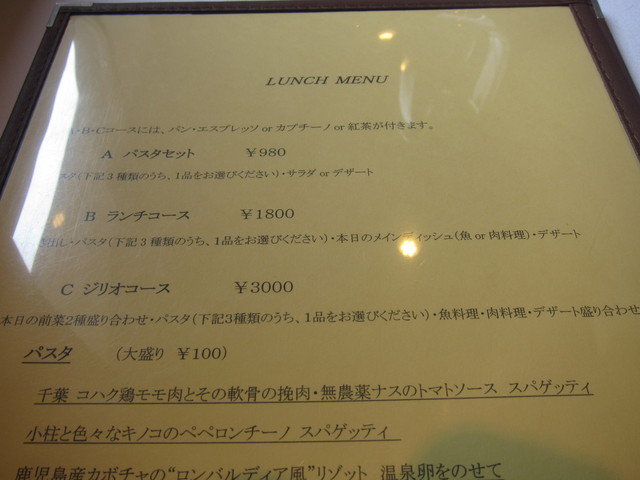 LUNCH MENU
・B・Cコースには、パン・エスプレッソ or カプチーノ or 紅茶が付きます。
A パスタセット ￥980
(下記3種類のうち、1品をお選びください)・サラダ or デザート
B ランチコース ￥1800
出し・パスタ(下記3種類のうち、1品をお選びください)・本日のメインディッシュ(魚 or 肉料理)・デザート
C ジリオコース ￥3000
本日の前菜2種盛り合わせ・パスタ(下記3種類のうち、1品をお選びください)・魚料理・肉料理・デザート盛り合わせ
パスタ (大盛り ￥100)
千葉 コハク鶏モモ肉とその軟骨の挽肉・無農薬ナスのトマトソース スパゲッティ
小柱と色々なキノコのペペロンチーノ スパゲッティ
鹿児島産カボチャの“ロンバルディア風”リゾット 温泉卵をのせて